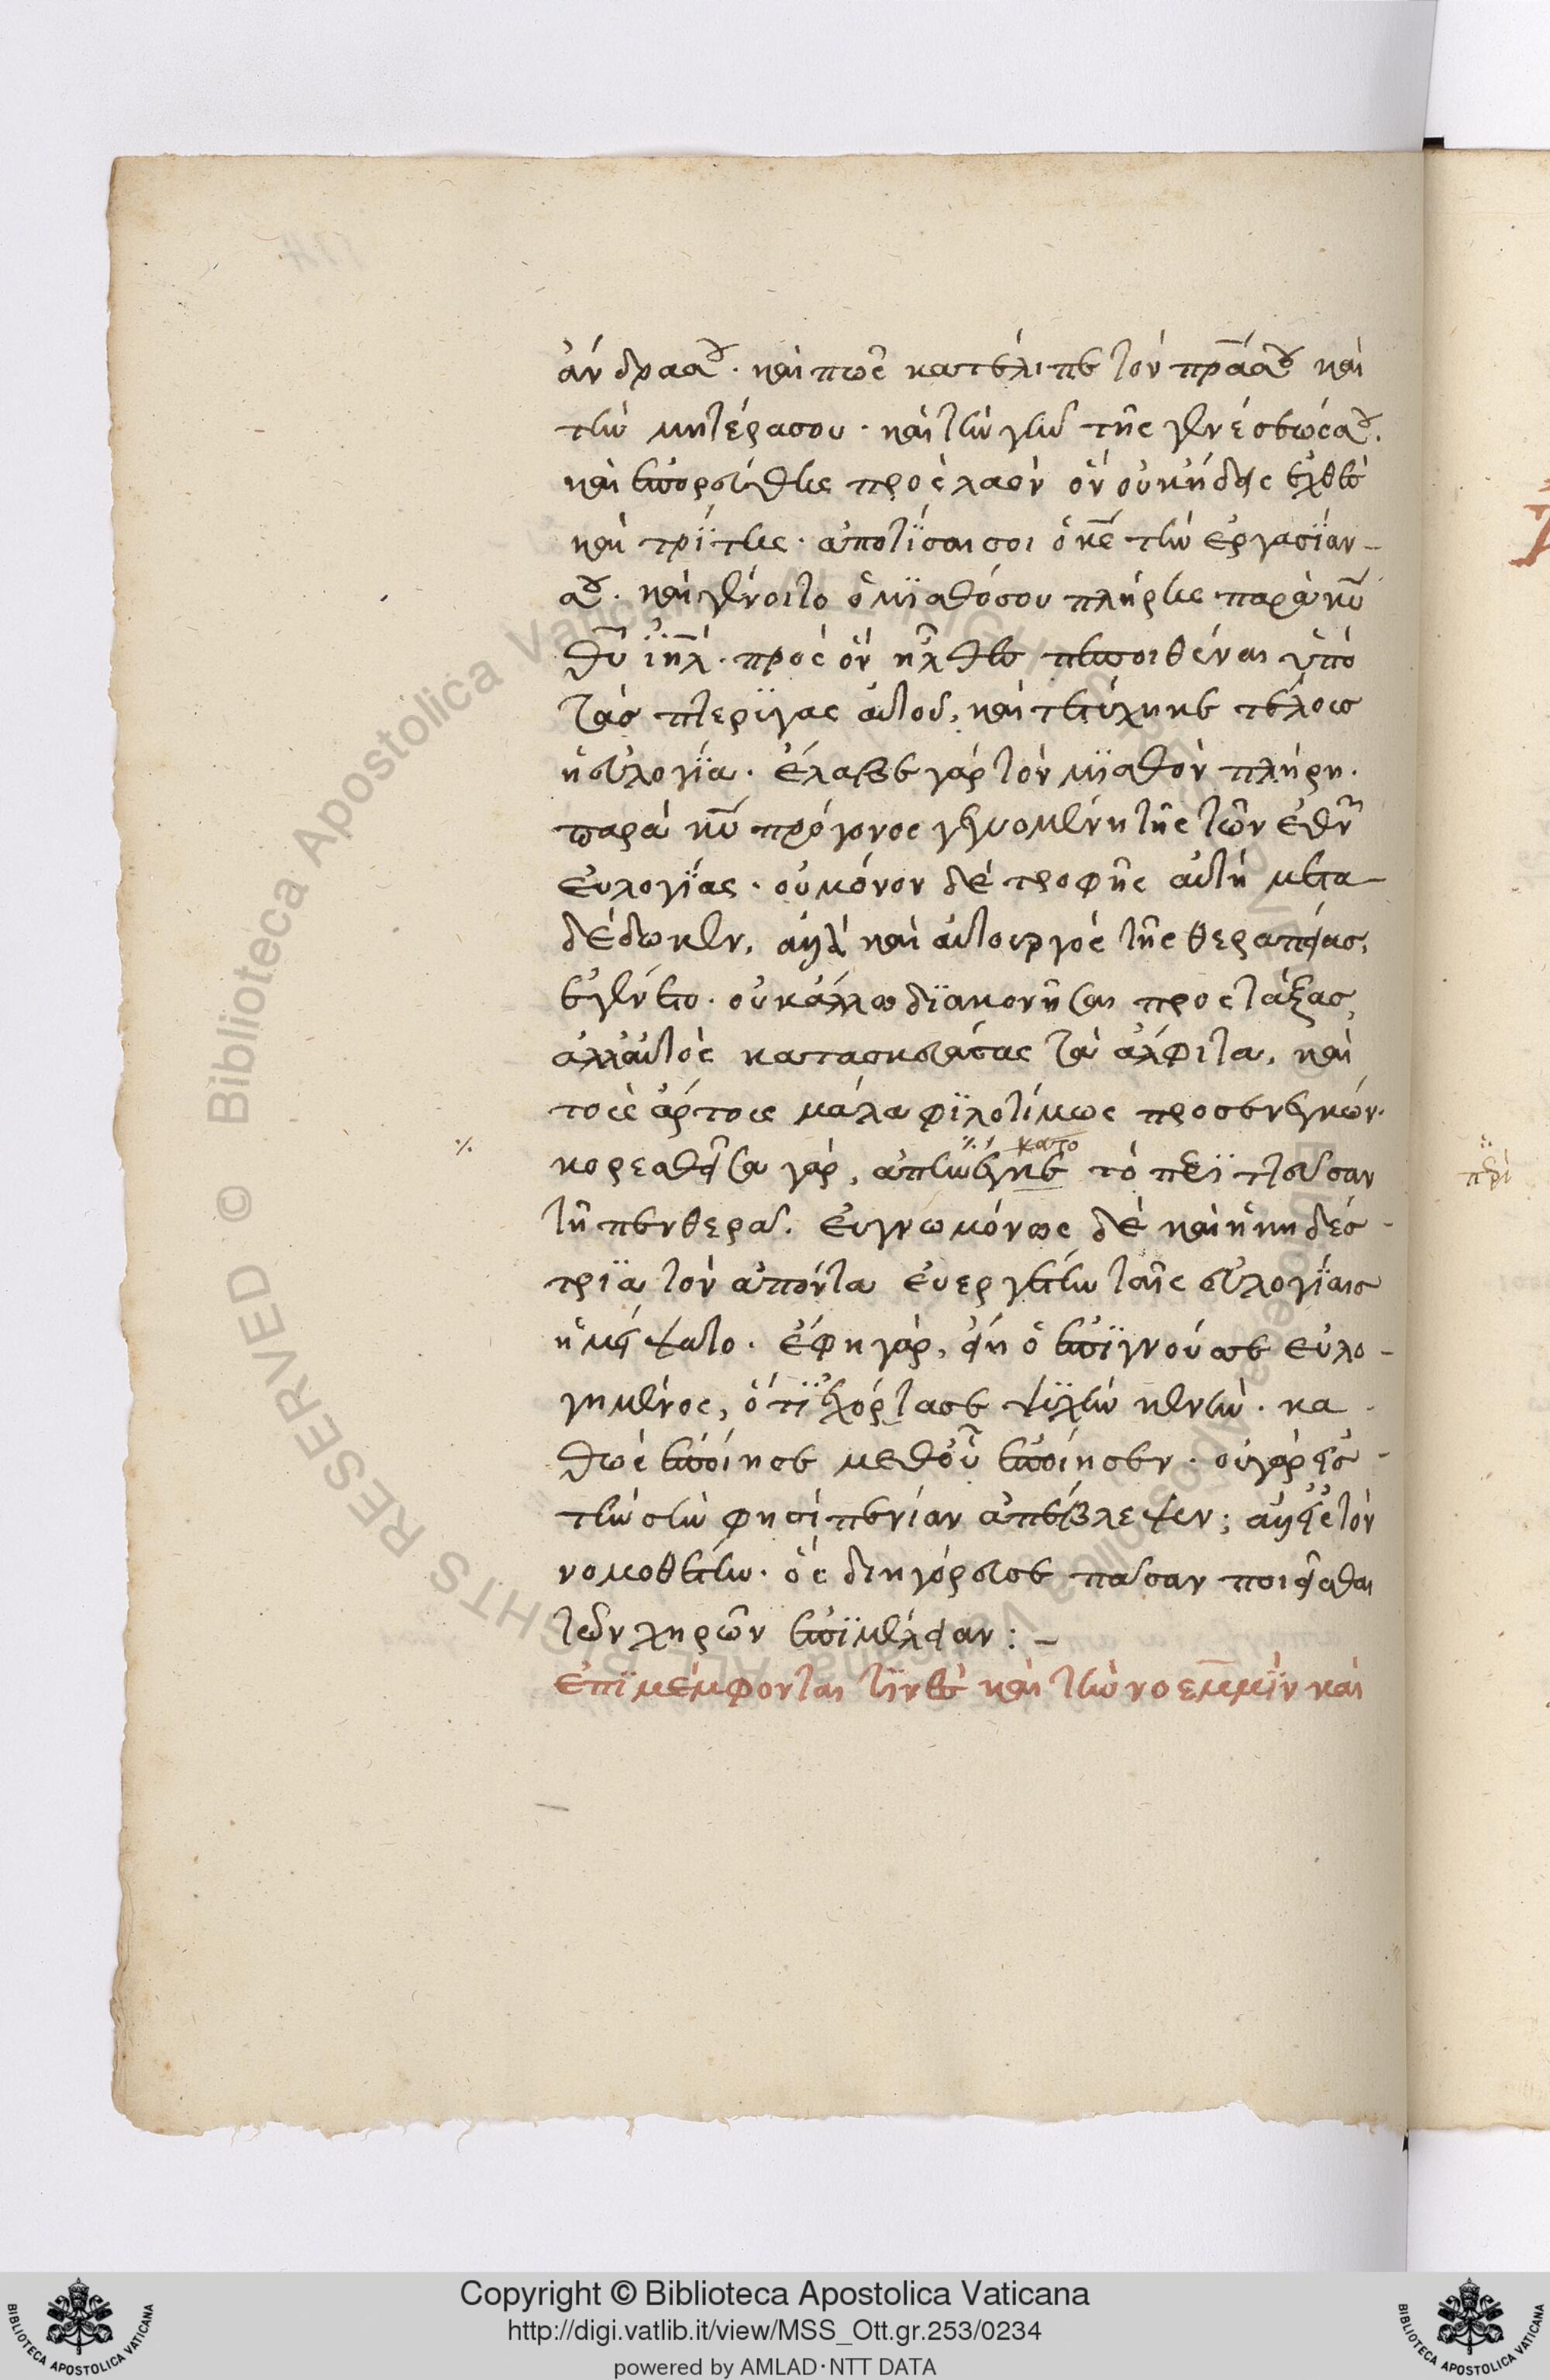 ἄνδρα σου. καὶ πῶς κατέλιπε τὸν πρ̅α σου καὶ
τὴν μητέρα σου. καὶ τὴν γῆν τῆς γενέσεώς σου.
καὶ ἐπορεύθης πρὸς λαὸν ὃν οὐκ ἤδεις ἐχθὲς
καὶ τρίτης. ἀποτίσαι σοι ὁ κ̅ς τὴν ἐργασίαν
σου. καὶ γένοιτο ὁ μισθός σου πλήρης παρὰ κ̅υ
θ̅υ ι̅η̅λ. πρὸς ὃν ἦλθες πεποιθέναι ὑπὸ
τὰς πτέρυγας αὐτοῦ, καὶ τετύχηκε τέλους
ἡ εὐλογία. ἔλαβε γὰρ τὸν μισθὸν πλήρη.
παρὰ κ̅υ πρόγονος γενομένη τῆς τῶν ἐθν
εὐλογίας. οὐ μόνον δὲ τροφῆς αὐτῇ μετα
δέδωκεν, ἀλλὰ καὶ αὐτουργὸς τῆς θεραπείας,
ἐγένετο. οὐκ ἄλλω διακονῆσαι προστάξας,
ἀλλ' αὐτὸς κατασκευάσας τὰ ἄλφιτα, καὶ
τοὺς ἄρτους μάλα φιλοτίμως προσενεγκών.
κορεσθεῖσα γάρ, ἀπενεγκε κατο τὸ περιττεῦσαν
τῇ πενθερᾶ. εὐγνωμόνως δὲ καὶ ἡ κηδέσ
τρια τὸν ἀπόντα εὐεργέτην ταῖς εὐλογίαις
ἠμείψατο. ἔφη γάρ, εἴη ὁ ἐπιγνούς σε εὐλο
γημένος, ὅτι ἐχόρτασε ψυχὴν κενήν. κα
θὼς ἐποίησε μεθ' οὗ ἐποίησεν. οὐ γὰρ εἰς
τὴν σὴν φησὶ πενίαν ἀπέβλεψεν; ἀλλ' εἰς τὸν
νομοθέτην. ὃς διηγόρευσε πᾶσαν ποιεῖσθαι
τῶν χηρῶν ἐπιμέλειαν: –
ἐπιμέμφονταί τινες καὶ τὴν νοεμμὶν καὶ